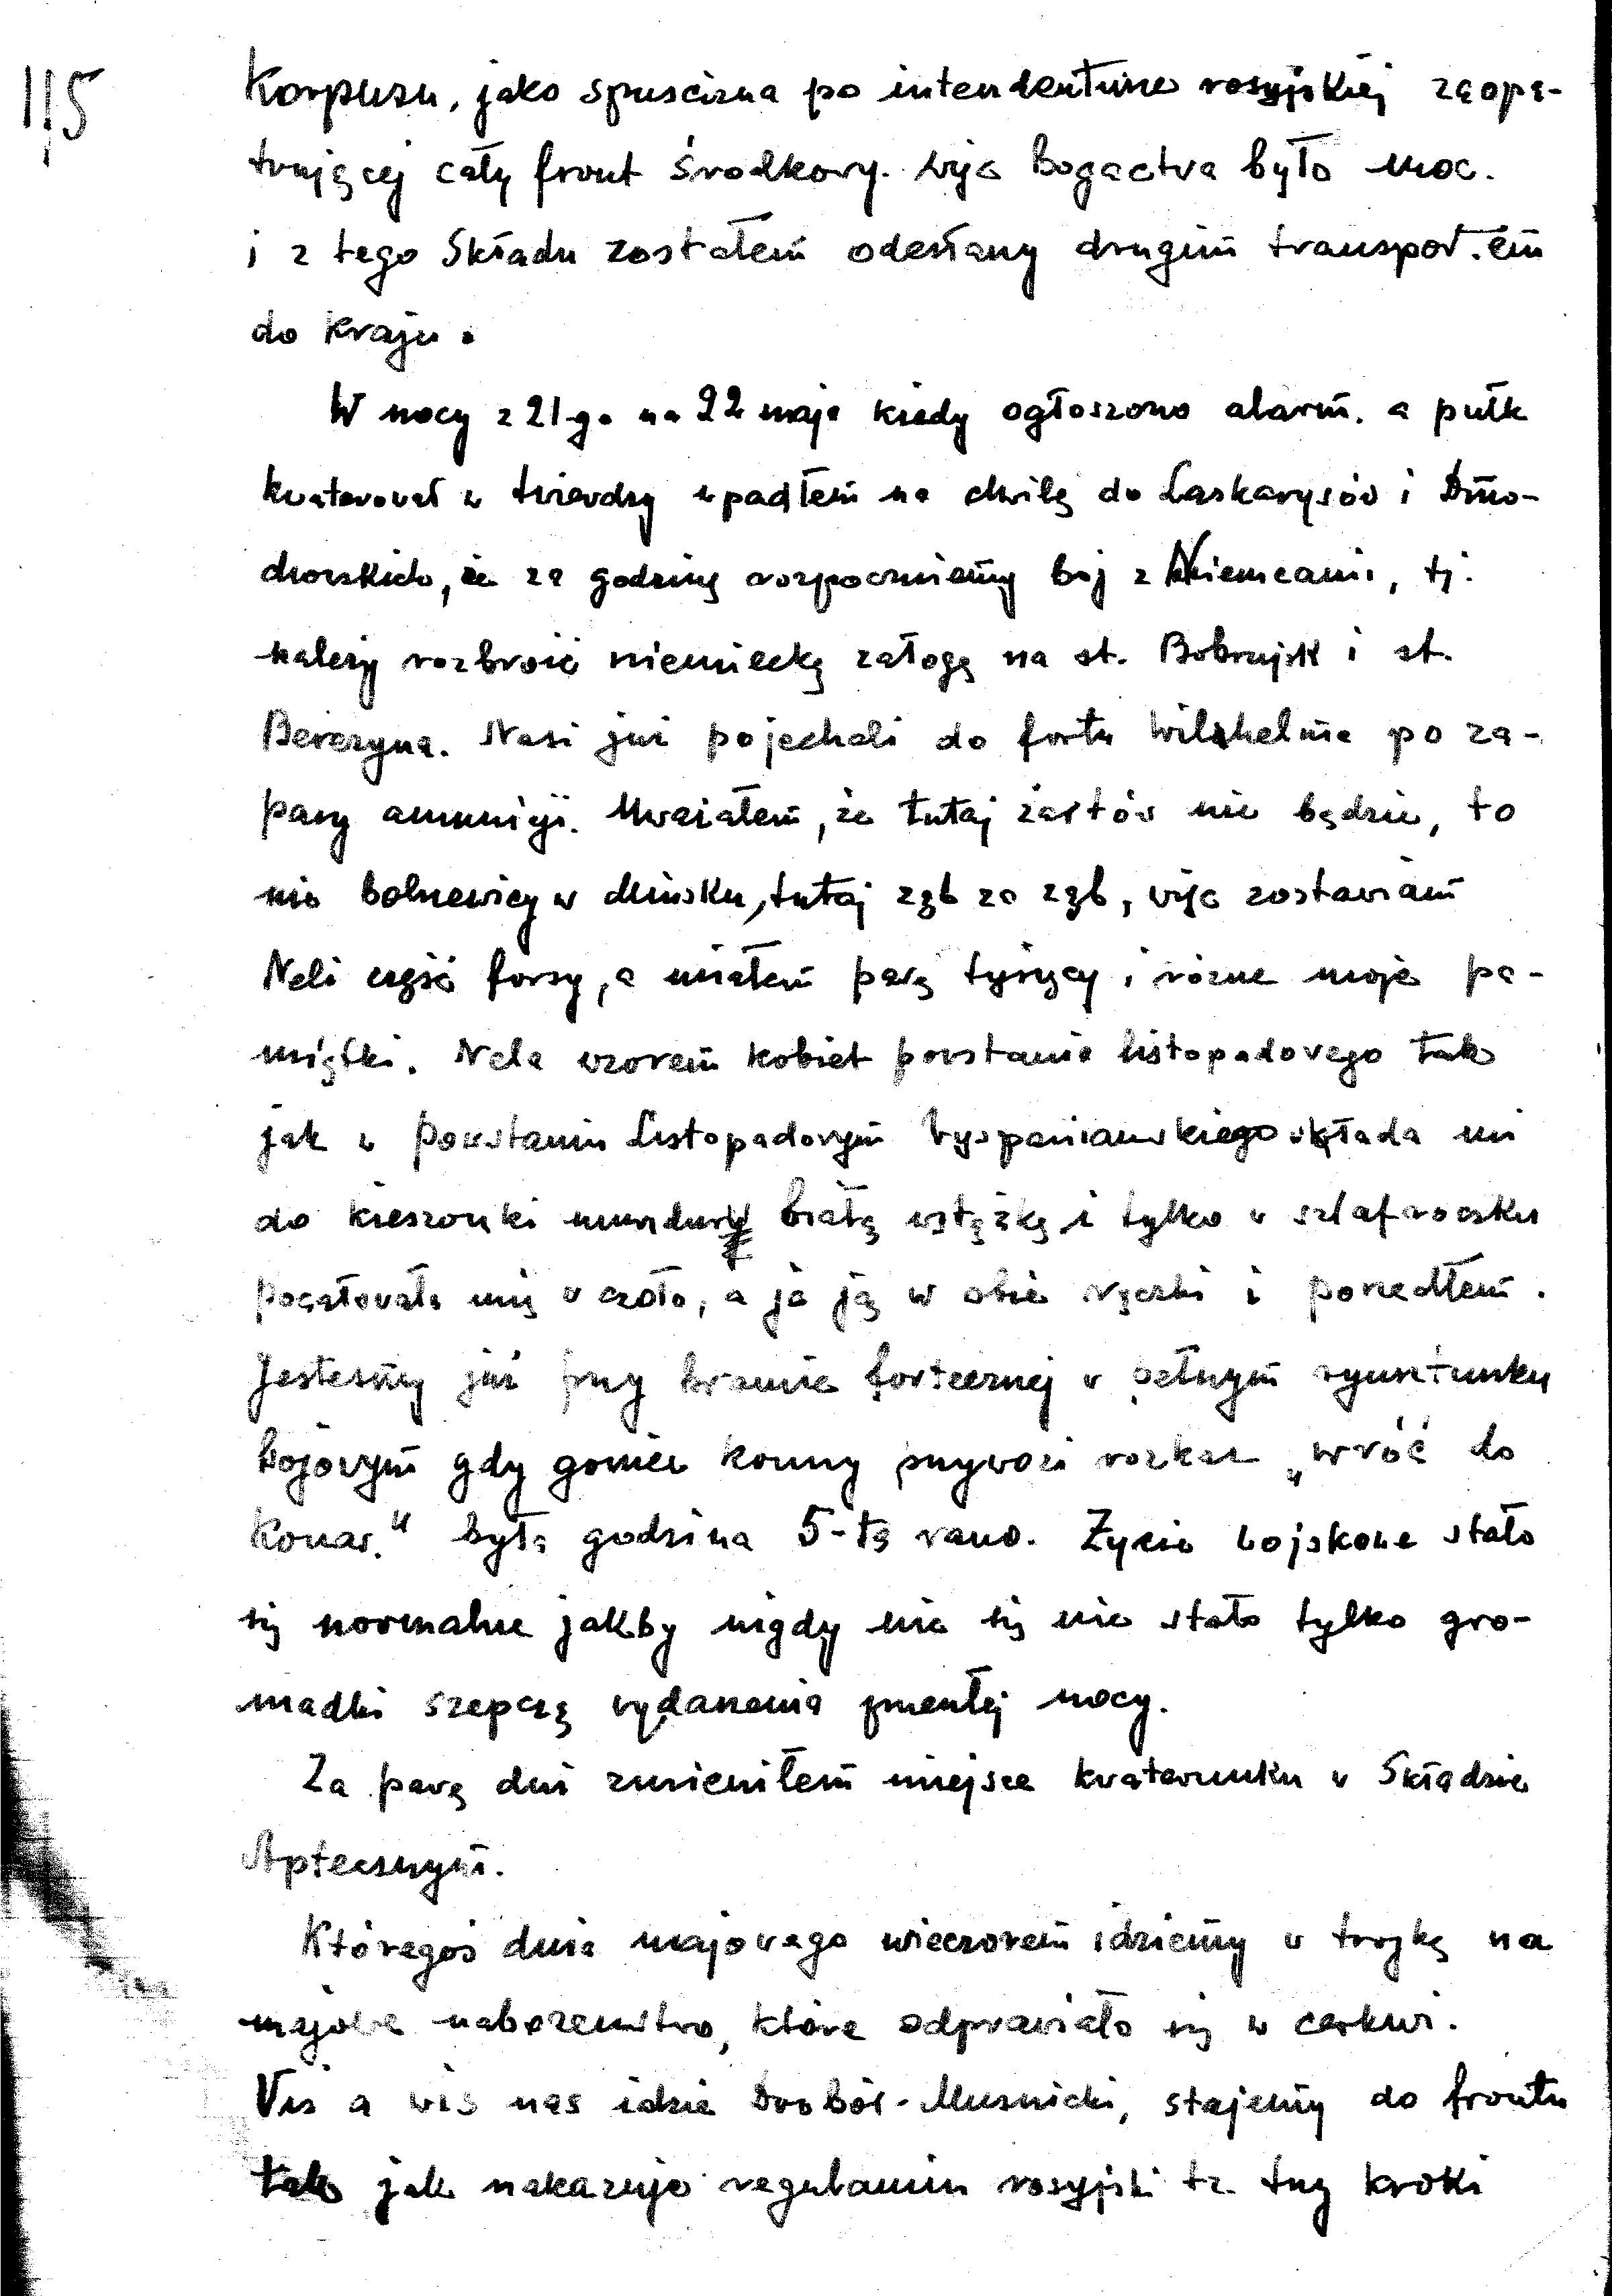 115
Korpusu, jako spuścizna po intendenturze rosyjskiej zaopa-
trującej cały front środkowy. Więc Bogactwa było moc.
i z tego Składu zostałem odesłany drugim transport.em
do kraju.
W nocy z 21-go na 22 maja kiedy ogłoszono alarm. a pułk
kwaterował w twierdzy wpadłem na chwilę do Laskarysów i Dmo-
chowskich, że za godzinę rozpoczniemy bój z Niemcami, tj.
należy rozbroić niemiecką załogę na st. Bobrujsk i st.
Berezyna. Nasi już pojechali do fortu Wilhelma po za-
pasy amunicji. Uważałem, że tutaj żartów nie będzie, to
nie bolszewicy w Mińsku, tutaj ząb za ząb, więc zostawiam
Neli część forsy, a miałem parę tysięcy i różne moje pa-
miątki. Nela wzorem kobiet powstania listopadowego tak
jak w Powstaniu Listopadowym Wyspaniawskiego wkłada mi
do kieszonki munduru białą wstążkę i tylko w szlafroczku
pocałowała mię w czoło, a ja ją w obie rączki i poszedłem.
Jesteśmy już przy bramie fortecznej w pełnym rynsztunku
bojowym gdy goniec konny przywozi rozkaz „wróć do
Koszar." była godzina 5-tą rano. Życie wojskowe stało
się normalne jakby nigdy nic się nie stało tylko gro-
madki szepczą wydarzenia zmentlej nocy.
Za parę dni zmieniłem miejsce kwaterunku w Składzie
Aptecznym.
Któregoś dnia majowego wieczorem idziemy w trojkę na
majowe nabożeństwo, które odprawiało się w cerkwi.
Vis a wis nas idzie Dowbór-Muśnicki, stajemy do frontu
tak jak nakazuje regulamin rosyjski tz. trzy kroki